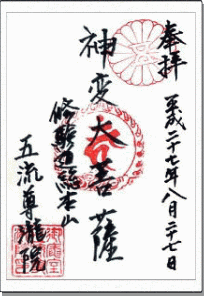 奉拝
平成二十七年八月二十七日
神変大菩薩
修験道総本山
五流尊瀧院